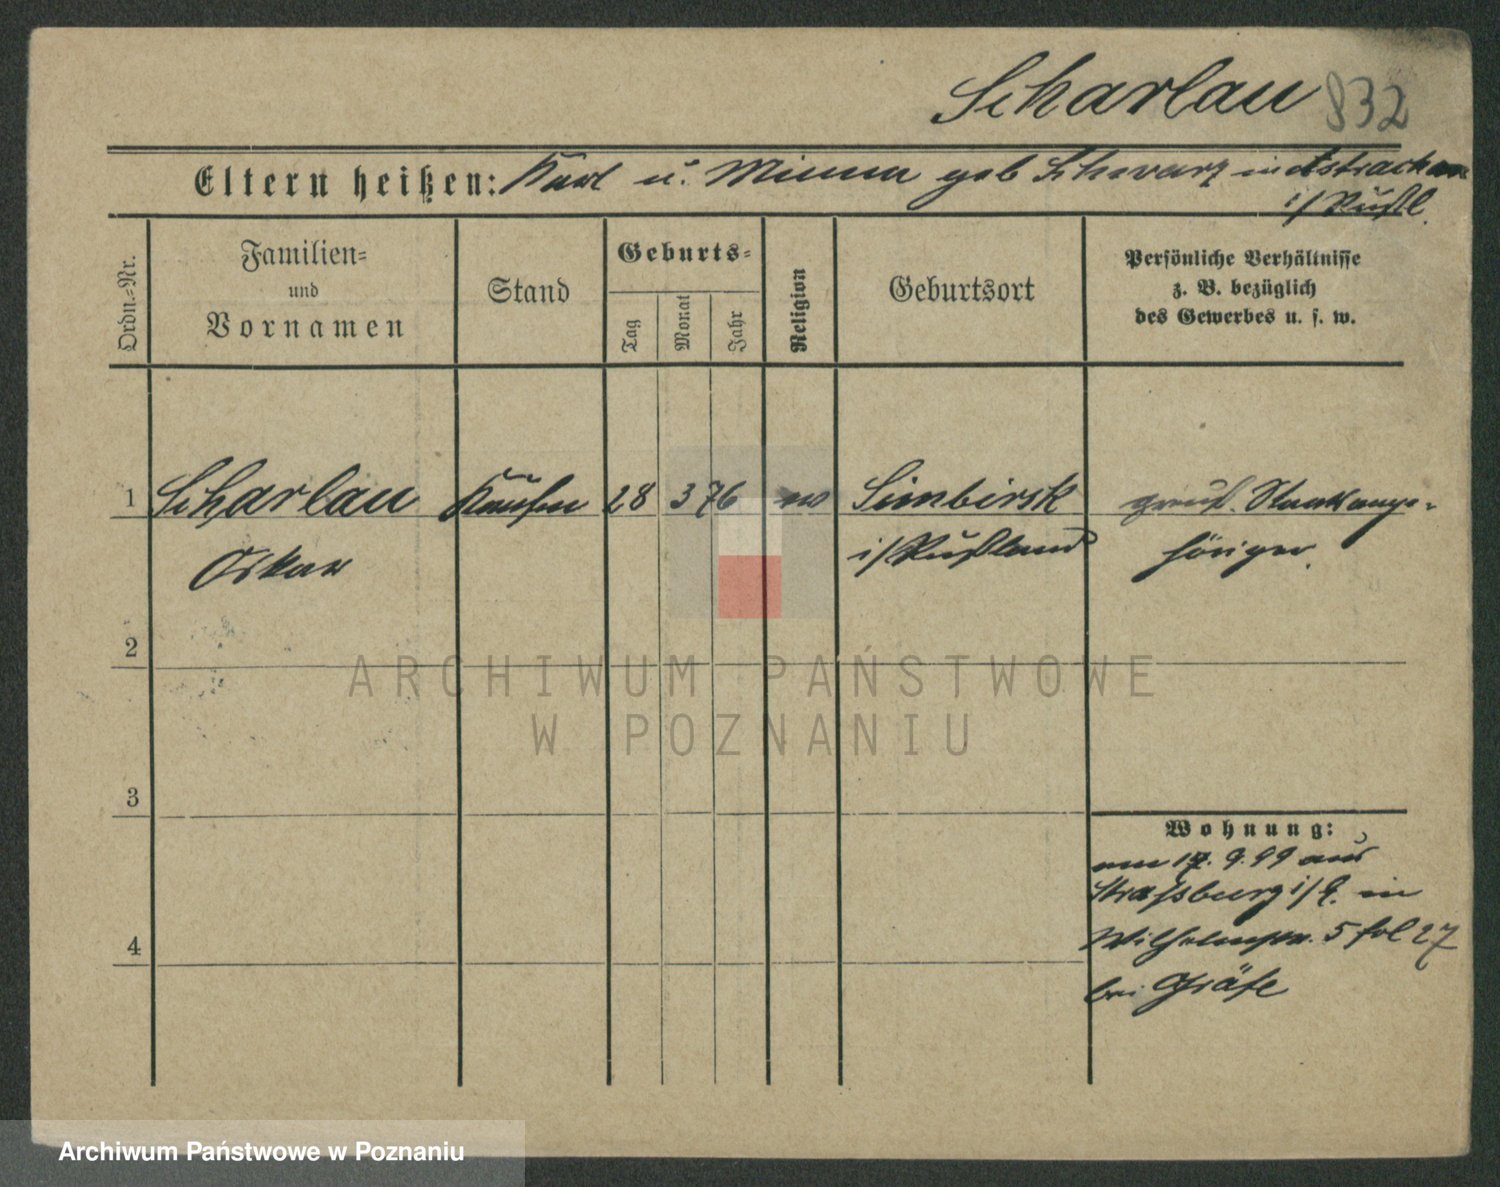 Scharlau 832
Eltern heißen: Karl u. Minna geb Schwarz in Astrachan
i/Rußl.
Ordn.-Nr.
Familien-
und
Vornamen
Stand
Geburts-
Tag
Monat
Jahr
Religion
Geburtsort
Persönliche Verhältnisse
z. B. bezüglich
des Gewerbes u. s. w.
1 Scharlau Kaufm 28 3 76 ev Simbirsk preuß. Staatsange-
Oskar i/Rußland höriger.
2
ARCHIWUM PAŃSTWOWE
W POZNANIU
3
Wohnung:
am 17. 9. 99 aus
Strassburg i/E. in
4 Wilhelmstr. 5 fol 27
bei Gräfe
Archiwum Państwowe w Poznaniu